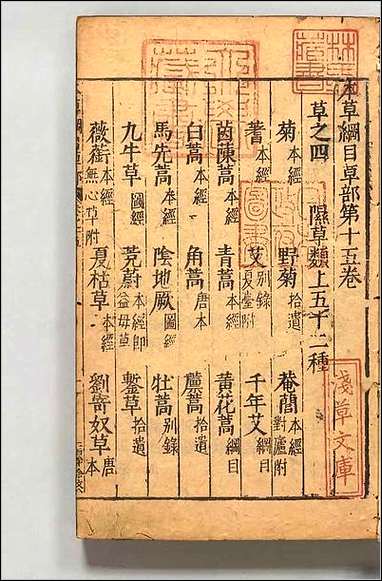 本草綱目草部第十五卷
草之四 隰草類上五十二種
菊本經 野菊拾遺 菴䕡本經 對廬附
蓍本經 艾别錄 夏臺附 千年艾綱目
茵蔯蒿本經 青蒿本經 黄花蒿綱目
白蒿本經 角蒿唐本 䕡蒿拾遺
馬先蒿本經 陰地厥圖經 牡蒿别錄
九牛草圖經 茺蔚本經即益母草 鏨草拾遺
薇蘅本經 無心草附 夏枯草本經 劉寄奴草唐本
淺草文庫